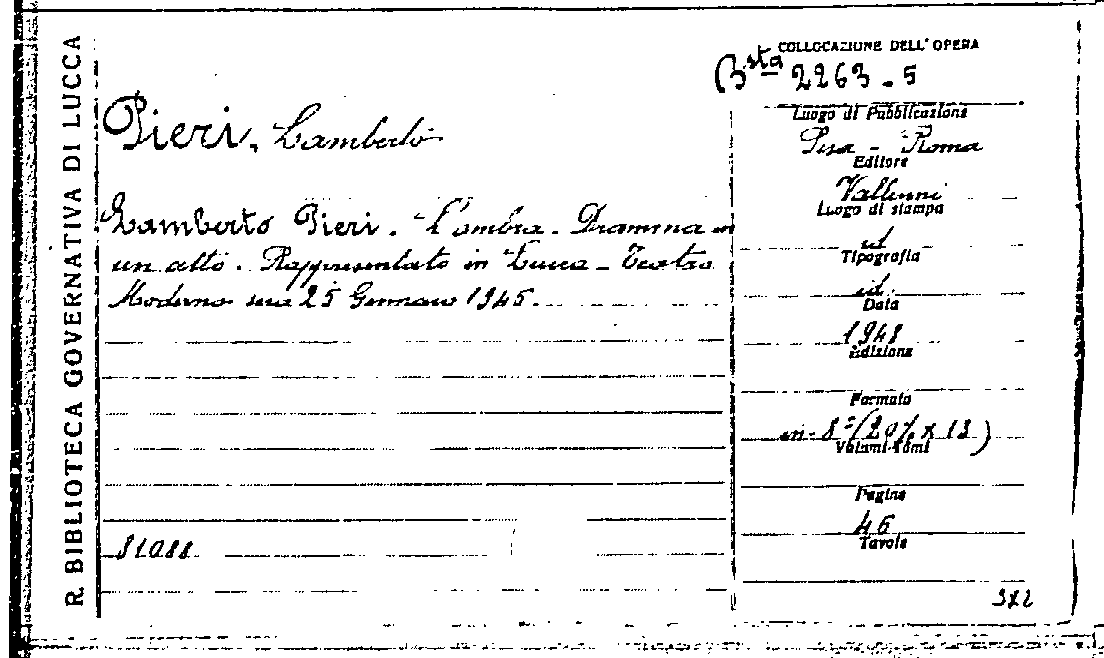 R. BIBLIOTECA GOVERNATIVA DI LUCCA
COLLOCAZIONE DELL'OPERA
Bsta 2263-5
Pieri, Lamberto
Lamberto Pieri. L'ombra. Dramma in
un atto. Rappresentato in Lucca - Teatro
Moderno 25 Gennaio 1945.
81088
Luogo di Pubblicazione
Pisa - Roma
Editore
Vallerini
Luogo di stampa
id
Tipografia
id.
Data
1948
Edizione
Formato
in-8° (20½ x 13)
Volumi-Tomi
Pagine
46
Tavole